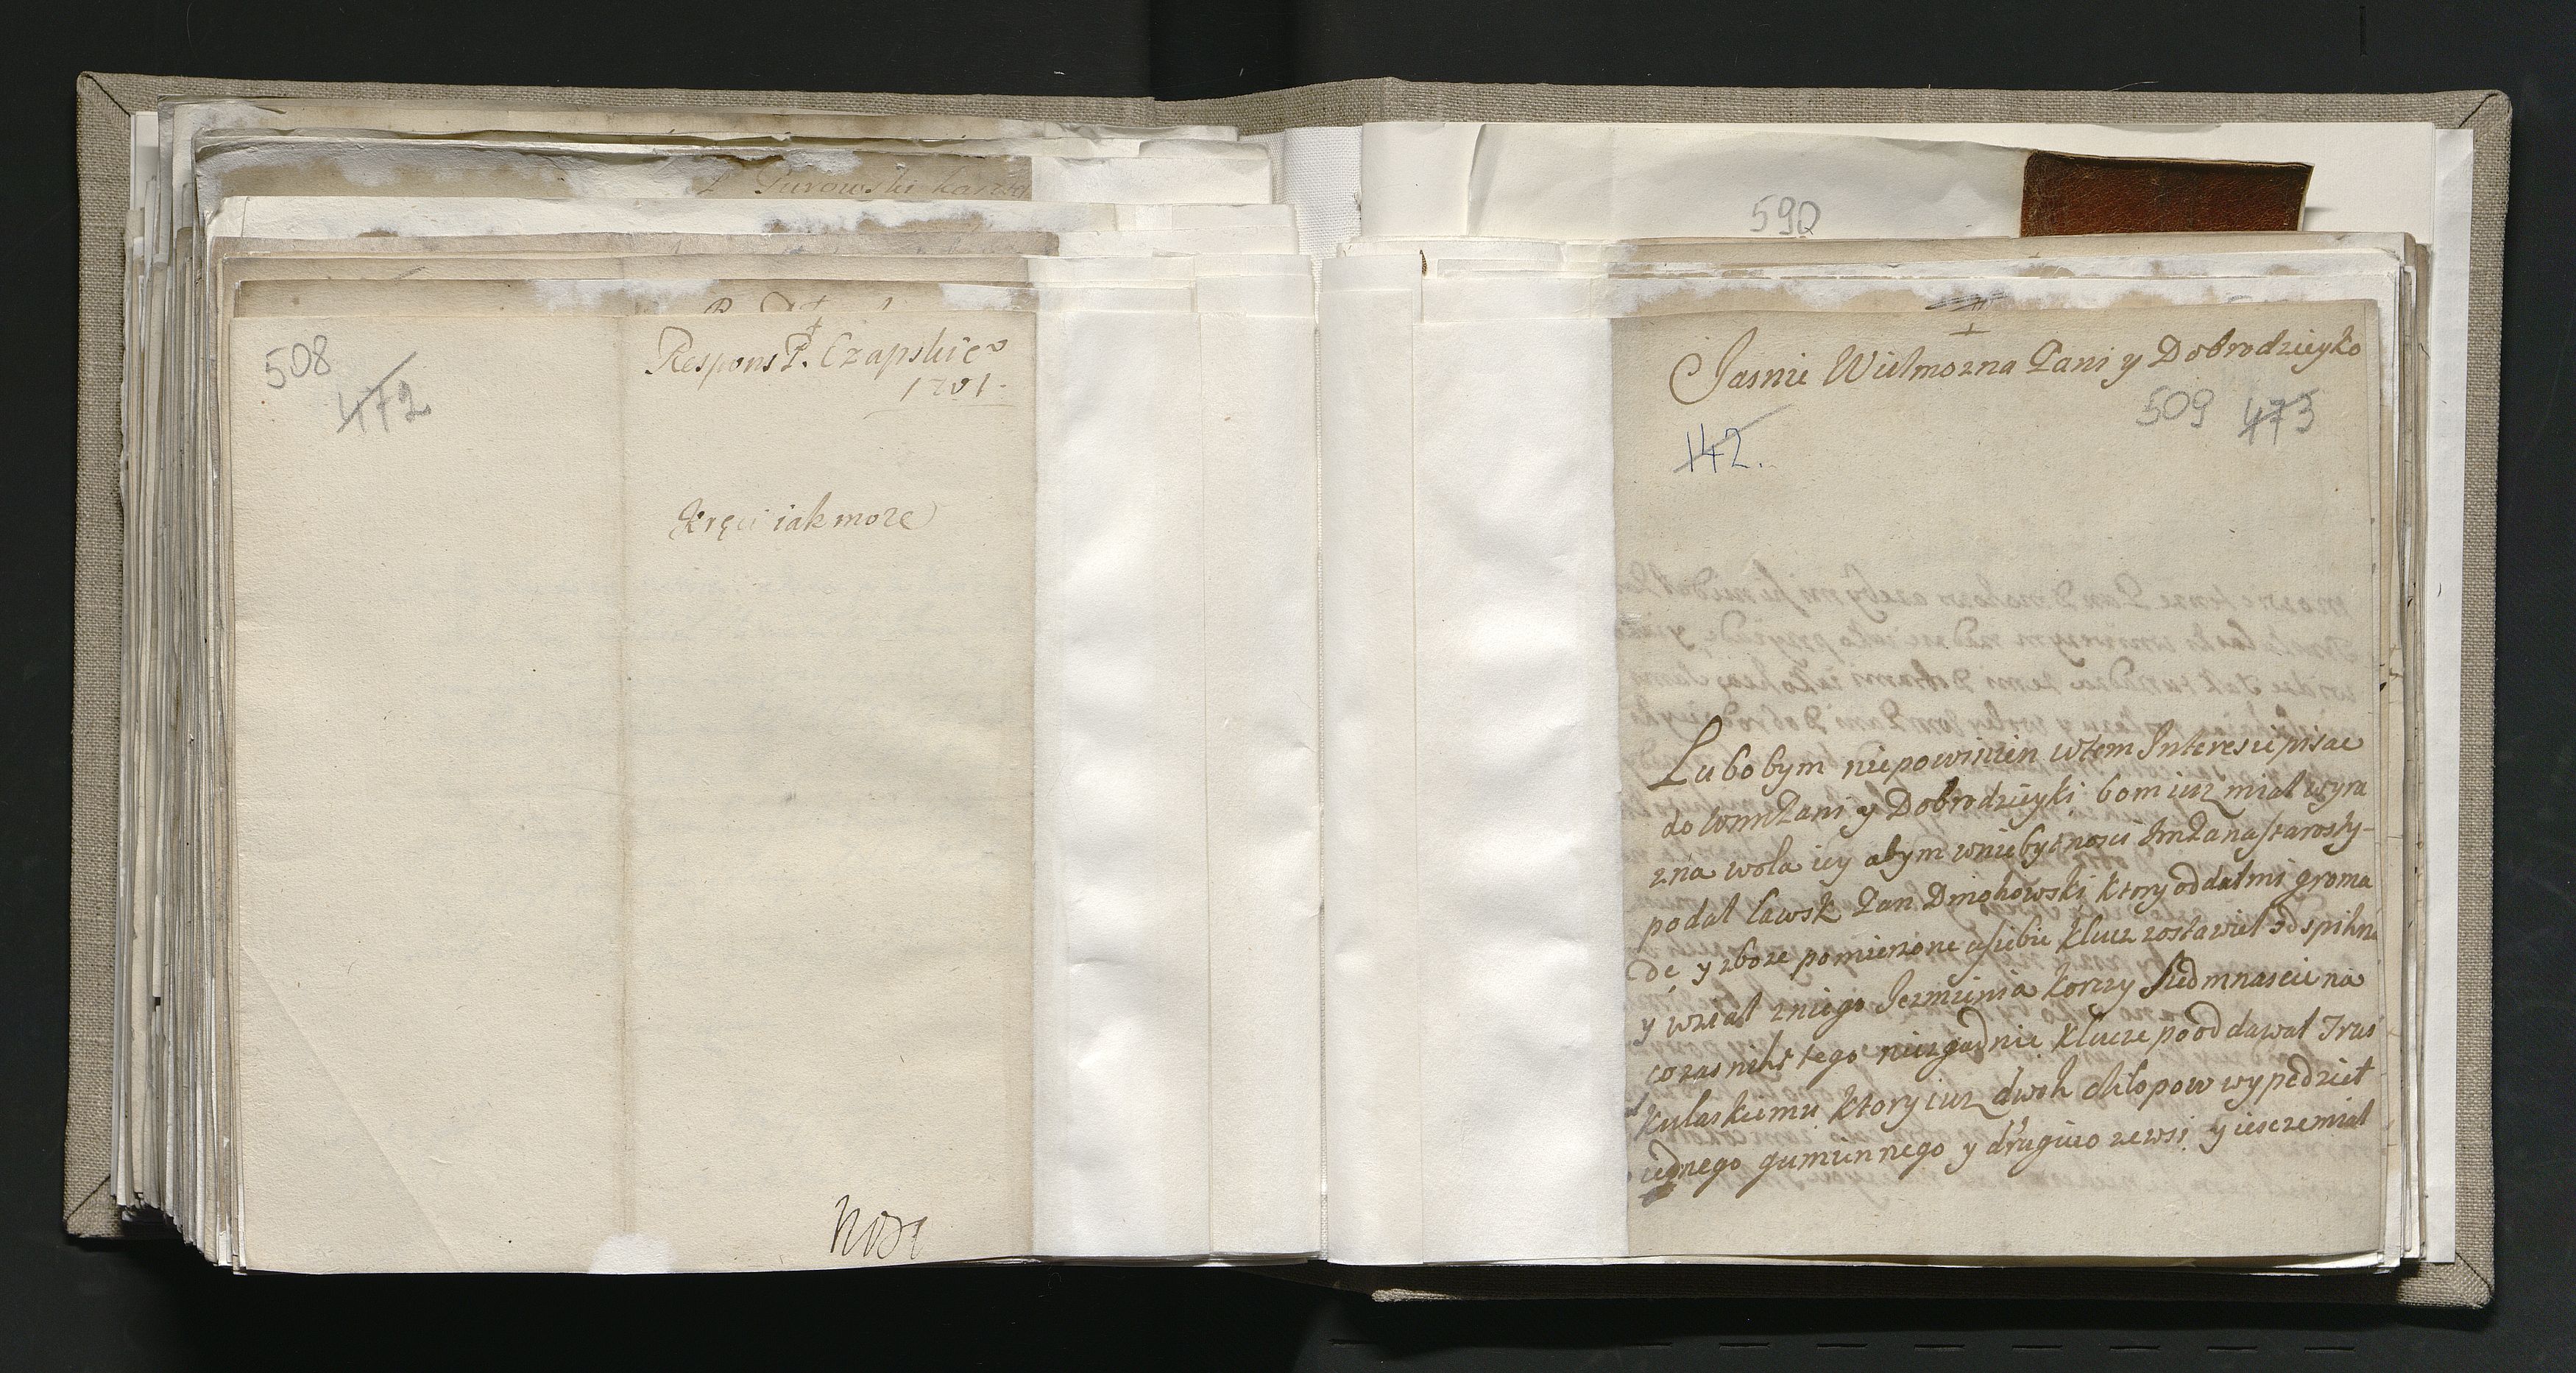 P Turowski
508
472
Respons P. Czapskieo
1701.
Kręci iak może
590
Jasnie Wielmozna Pani y Dobrodzieyko
509 473
142.
Lubobym niepowinien wtem Interesie pisac
do WmPani y Dobrodzieyki bom iuz miał wyra
zna wola iey abym wniebytnosci ImPana starosty
podał Pan Dmohowski ktory oddał mi groma
dę y zboze pomierzone a siebie klucz zostawieł od spihr
y wział zniego Jeczmienia korcy siedmnascie na
co zas niht tego niezgadnie klucze pooddawał Trus
kulaskiemu ktory iusz dwoh chłopow wypędzieł
iednego gumiennego y drugieo zewsi y ieszczemiał